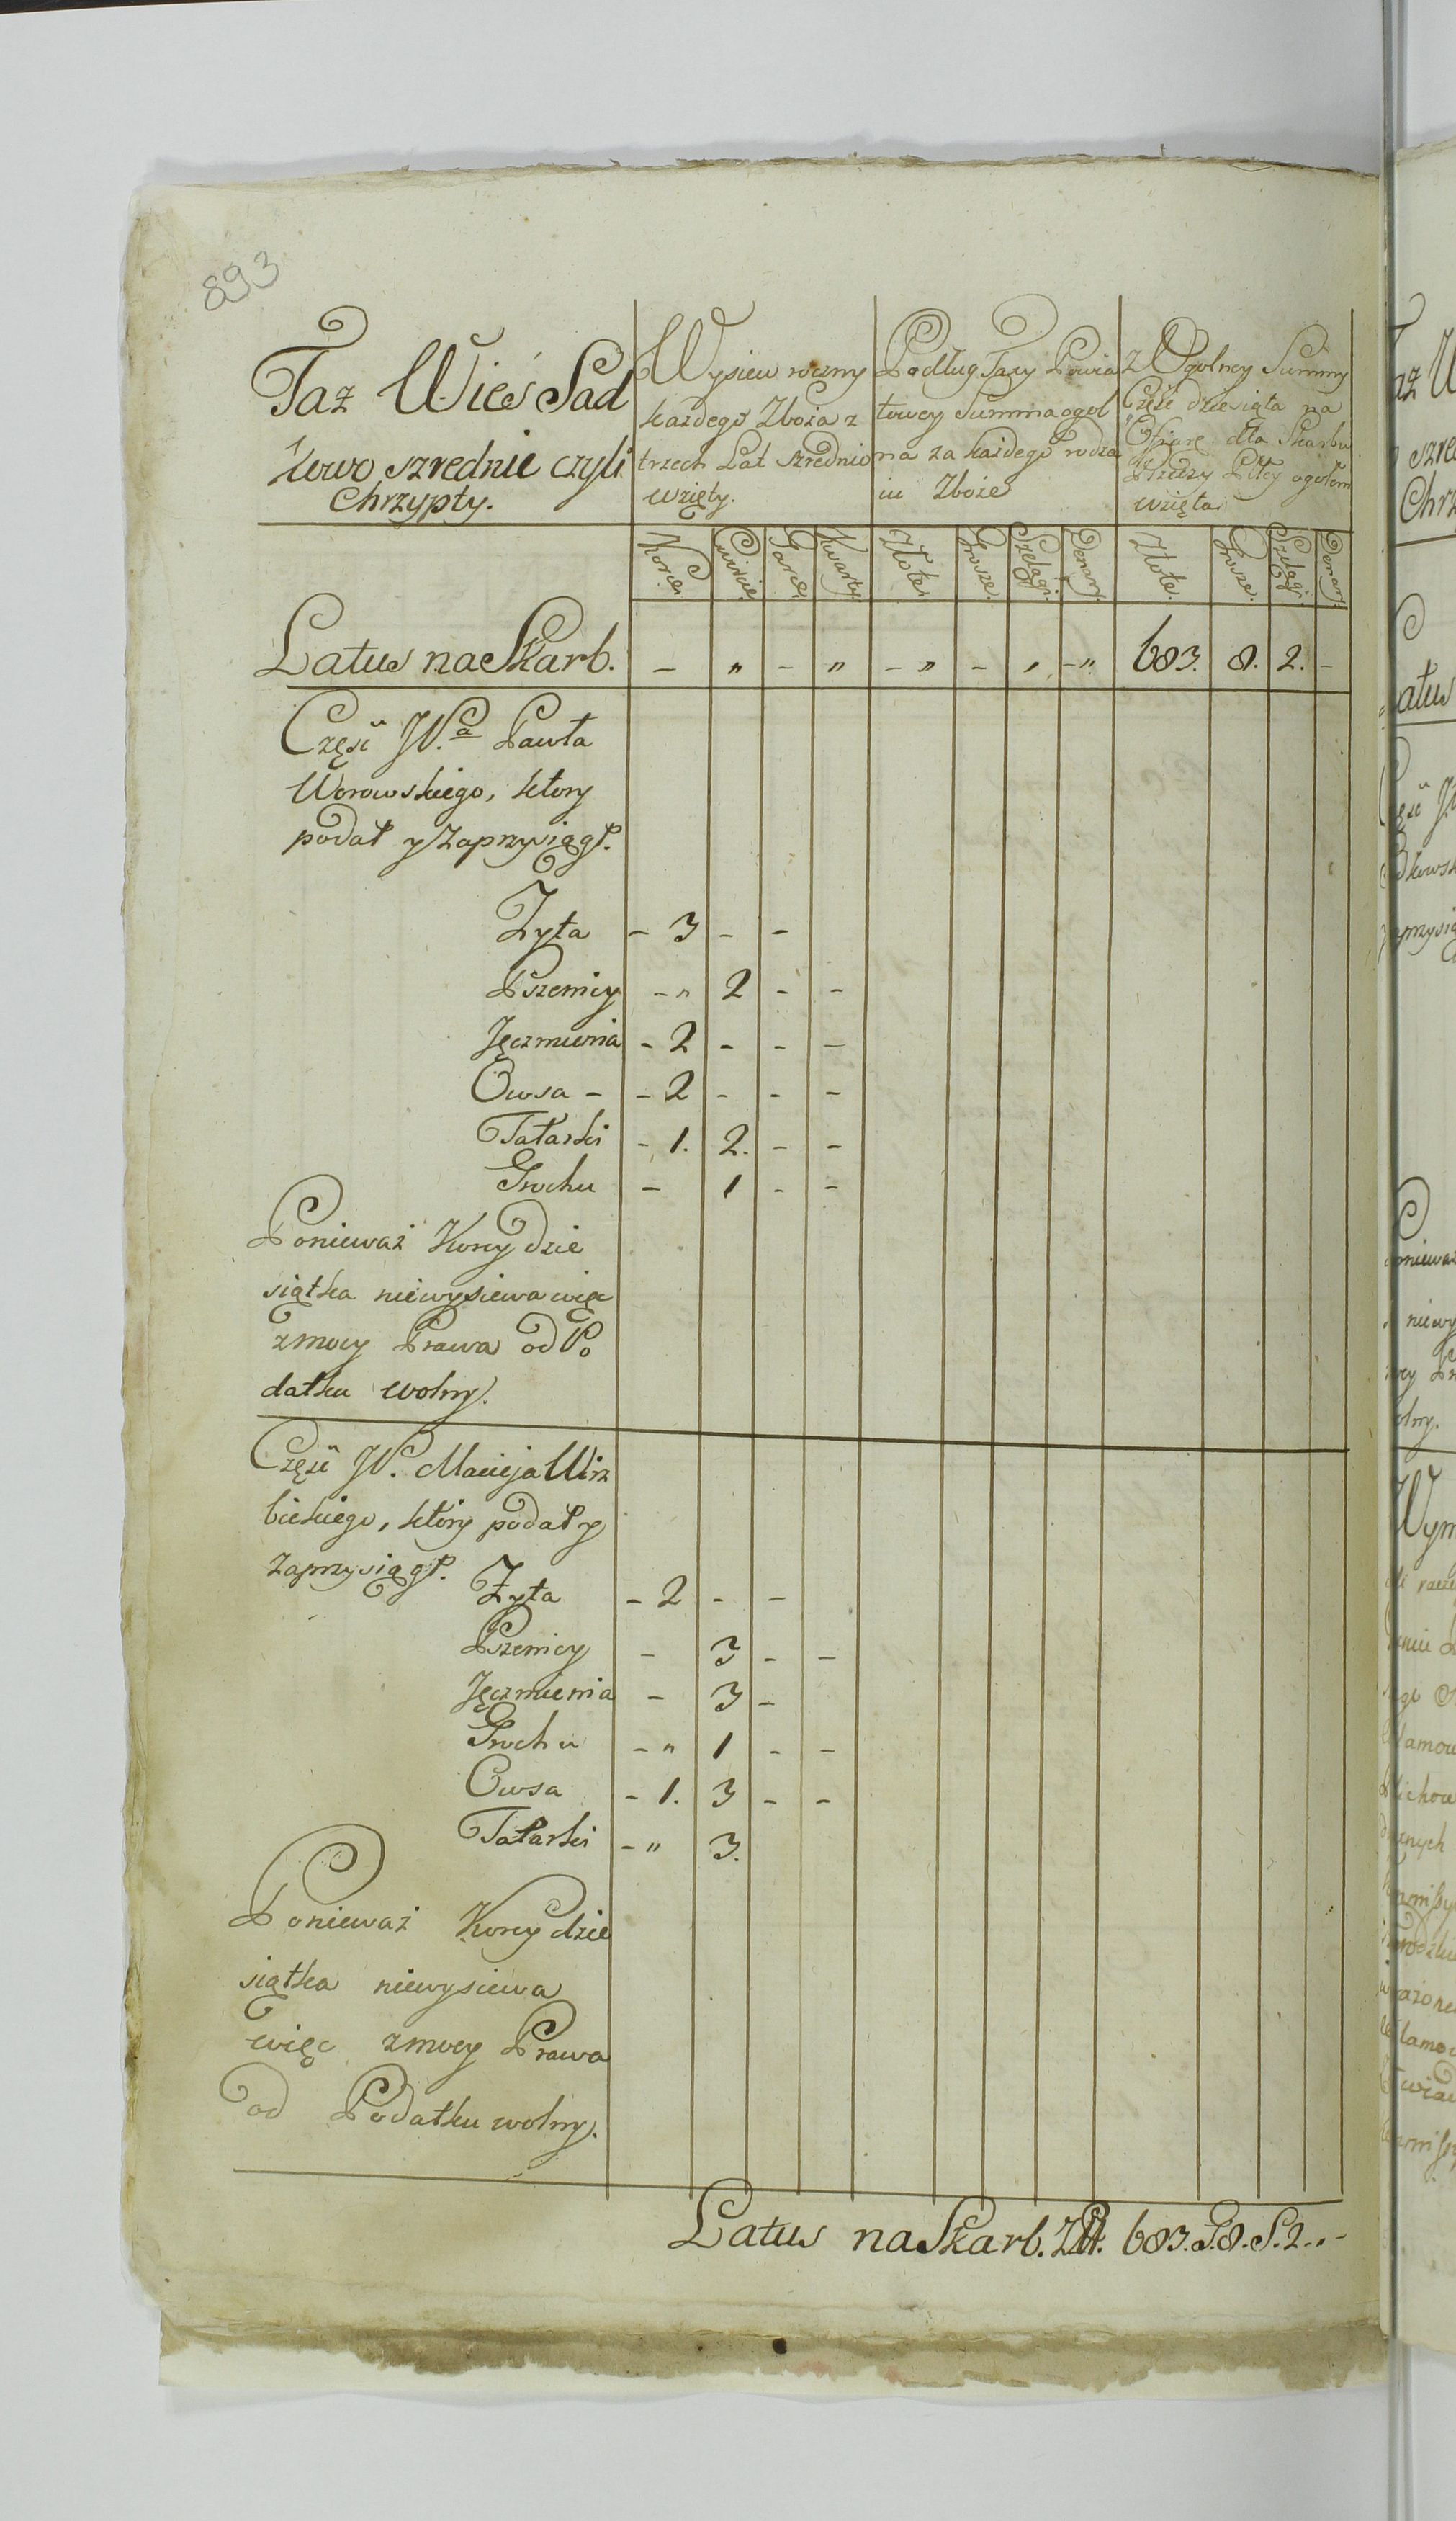 893
Taż Wieś Sad
kowo szrednie czyli
Chrzypty.
Wysiew roczny
każdego Zboża z
trzech Lat szrednio
wzięty.
Podług Taxy Powia
towey Summa ogol
na za każdego rodza
iu Zboże
z Ogolney Summy
Część dziesiąta na
Ofiarę dla Skarbu
Rzeczy Pltey ogołem
wzięta
Korce Ćwierci Garce Kwarty Złote Grosze. Szelągi. Denary Złote. Grosze. Szelągi. Denary.
Latus na Skarb. - " - " - " - " - " 683. 8. 2. -
Część W.a Pawła
Worowskiego, ktory
podał y zaprzysiągł.
Żyta - 3 - -
Pszenicy - " 2 - -
Jęczmienia - 2 - - -
Owsa - - 2 - - -
Tatarki - 1. 2. - -
Grochu - 1 - -
Ponieważ Korcy dzie
siątka niewysiewa więc
z mocy Prawa od Po
datku wolny.
Część W. Macieja Wirz
bickiego, ktory podał y
zaprzysiągł.
Żyta - 2 - -
Pszenicy - 3 - -
Jęczmienia - 3 -
Grochu - " 1 - -
Owsa - 1. 3 - -
Tatarki - " 3.
Ponieważ Korcy dzie
siątka niewysiewa
więc z mocy Prawa
od Podatku wolny.
Latus na Skarb. Złt. 683. G. 8. S. 2..-